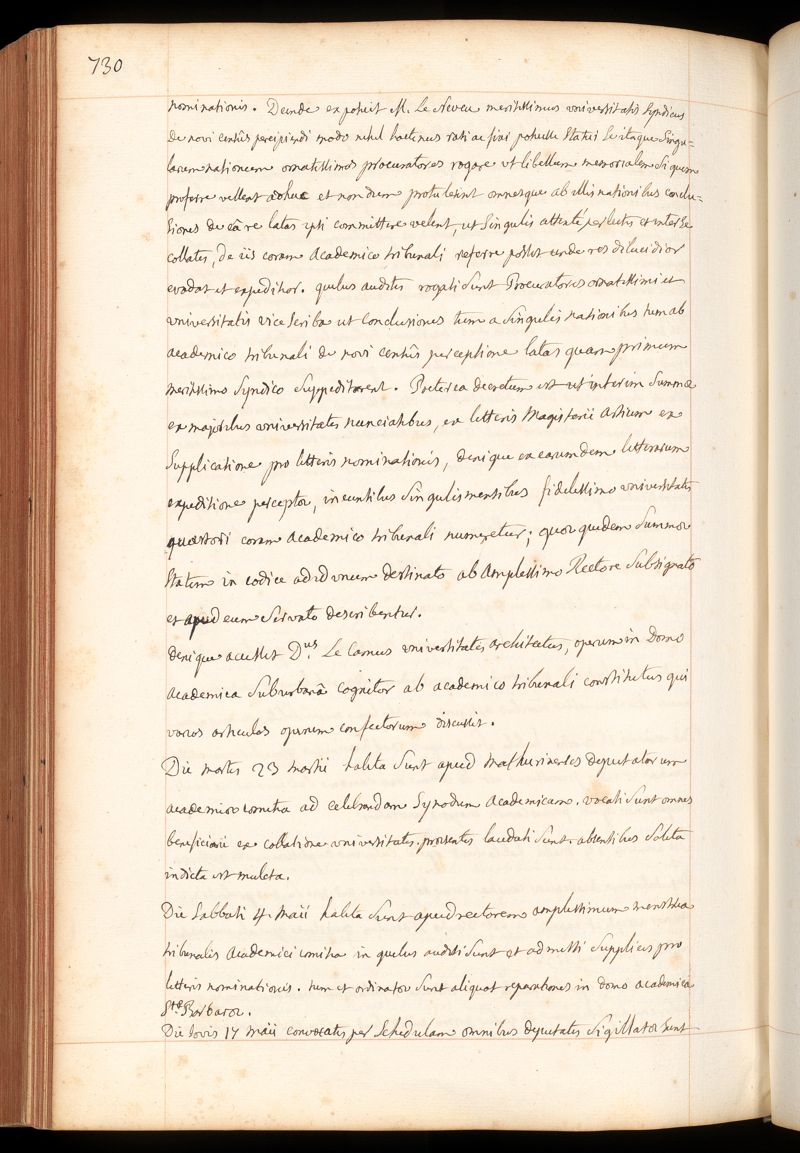 730
nominationis. Deinde exposuit M. Le Neveu meritissimus universitatis Syndicus
De novi censûs percipiendi modo nihil hactenus rati ac fixi potuisse statui se itaque Singu=
larum nationum ornatissimos procuratores rogare ut libellum memorialem si quem
proferre vellent adhuc et nondum protulerint omnesque ab illis nationibus conclu=
siones de eâ re latas ipsi committere velent, ut Singulis attentè perlectis et inter se
collatis, de iis coram Academico tribunali referre possit unde res dilucidior
evadat et expeditior. quibus auditis rogati Sunt Procuratores ornatissimi et
universitatis vice Scriba ut Conclusiones tum a Singulis nationibus tum ab
academico tribunali de novi censûs perceptione latas quam primum
meritissimo Syndico Suppeditarent. Praeterea decretum est ut interim Summae
ex majoribus universitatis nunciatibus, ex litteris Magisterii Artium ex
Supplicatione pro litteris nominationis, denique ex earumdem litterarum
expeditione perceptae, ineuntibus Singulis mensibus fidelissimo universitatis
quaestori coram Academico tribunali numeretur; quae quidem Summae
statim in codice ad id unum destinato ab Amplissimo Rectore Subsignato
et apud eum Servato describentur.
denique accessit D.us Le Camus universitatis architectus, operum in Domo
Academica Suburbanâ Cognitor ab academico tribunali constitutus qui
varios articulos operum confectorum discussit.
Die martis 23 martii habita Sunt apud Mathurinenses deputatorum
academico comitia ad celebrandam Synodum Academicam. vocati Sunt omnes
beneficiarii ex collatione universitatis. praesentes laudati Sunt. absentibus Solita
indicta est mulcta.
Die Sabbati 4. Maii habita Sunt apud rectorem amplissimum menstrua
tribunalis Academici comitia in quibus auditi Sunt et admissi Supplices pro
litteris nominationis. tum et ordinatae Sunt aliquot reparationes in domo academica
S.tae Barbarae.
Die Jovis 17 Maii convocatis per Schedulam omnibus deputatis Sigillatae Sunt